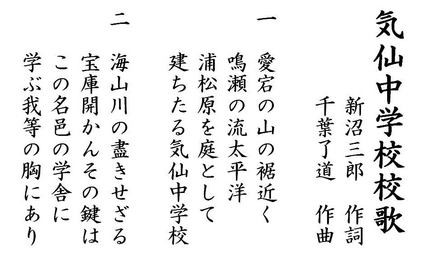 気仙中学校校歌
新沼三郎 作詞
千葉了道 作曲
一 愛宕の山の裾近く
鳴瀬の流太平洋
浦松原を庭として
建ちたる気仙中学校
二 海山川の盡きせざる
宝庫開かんその鍵は
この名邑の学舎に
学ぶ我等の胸にあり